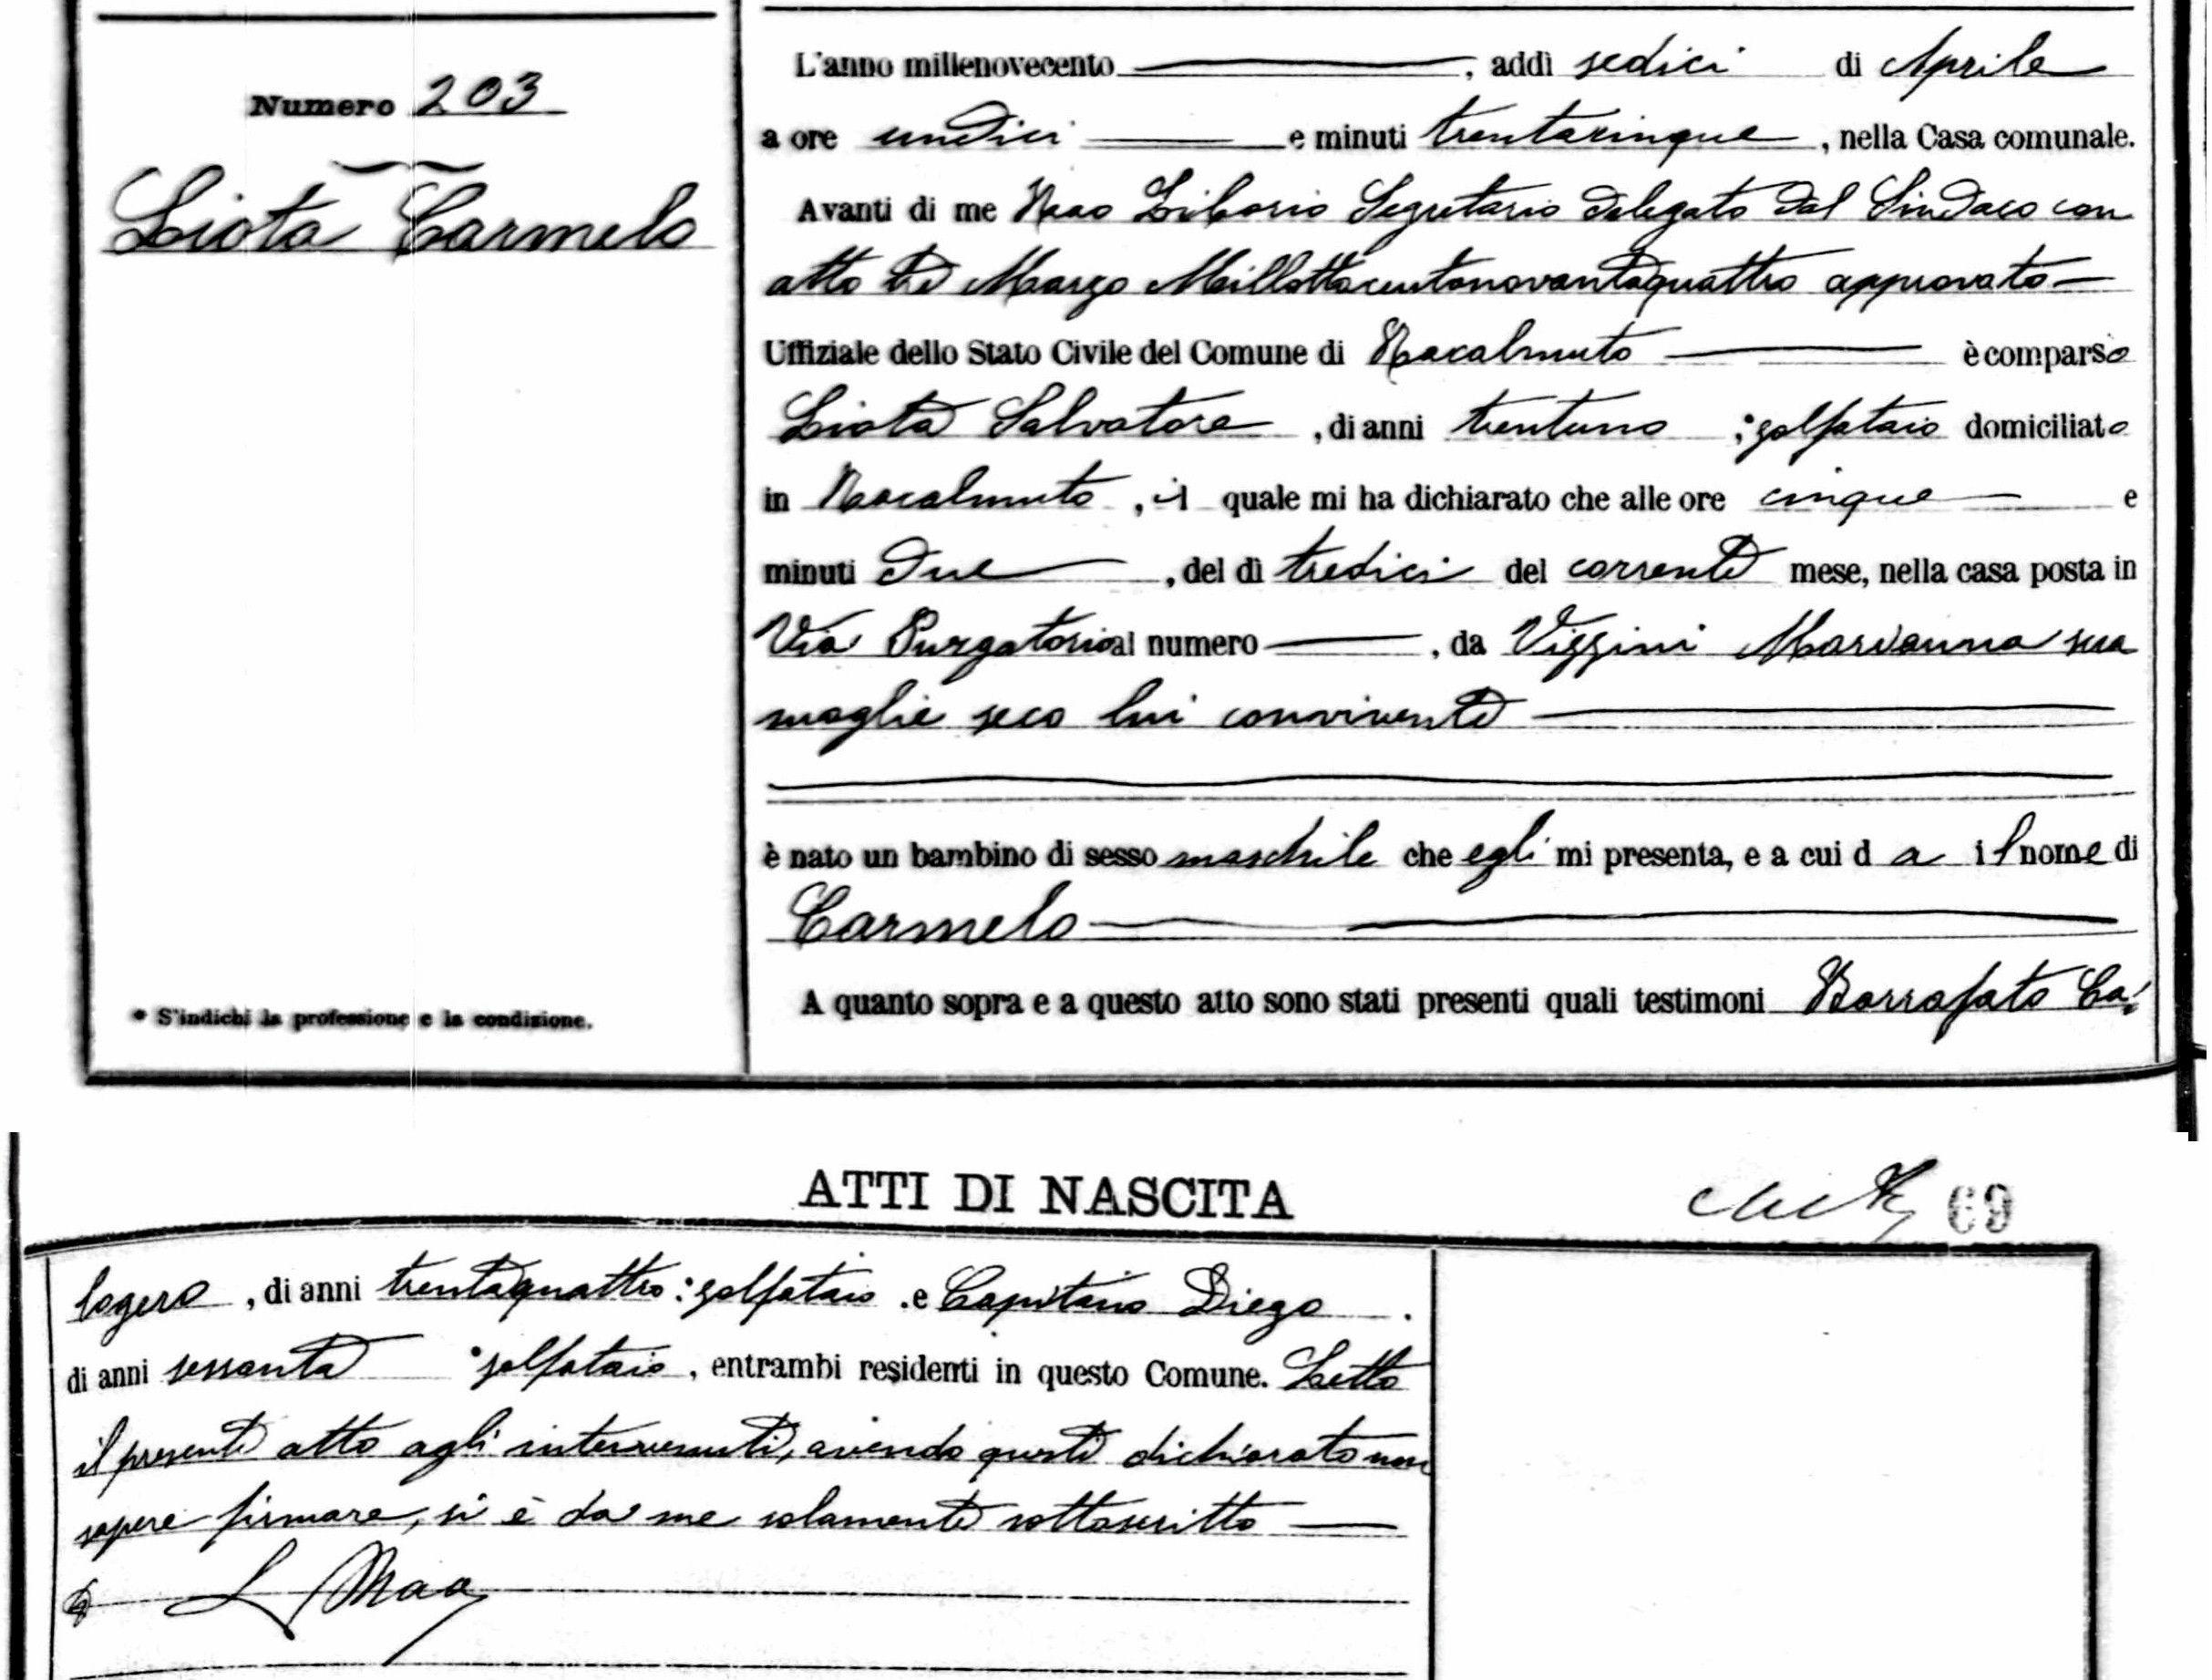 Numero 203
Liota Carmelo
* S'indichi la professione e la condizione.
L'anno millenovecento, addì sedici di Aprile
a ore undici e minuti trentacinque, nella Casa comunale.
Avanti di me Liborio Segretario delegato dal Sindaco con
atto tre Marzo Millottocentonovantaquattro approvato
Uffiziale dello Stato Civile del Comune di Racalmuto è comparso
Liota Salvatore, di anni trentuno, solfataio domiciliato
in Racalmuto, il quale mi ha dichiarato che alle ore cinque e
minuti due, del dì tredici del corrente mese, nella casa posta in
Via Purgatorio al numero, da Viggini Marianna sua
moglie seco lui convivente
è nato un bambino di sesso maschile che egli mi presenta, e a cui da il nome di
Carmelo
A quanto sopra e a questo atto sono stati presenti quali testimoni Borrafato Ca-
ATTI DI NASCITA
69
logero, di anni trentaquattro solfataio e Capitano Diego
di anni sessanta solfataio, entrambi residenti in questo Comune. Letto
il presente atto agli intervenuti, avendo questi dichiarato non
sapere firmare, si è da me solamente sottoscritto